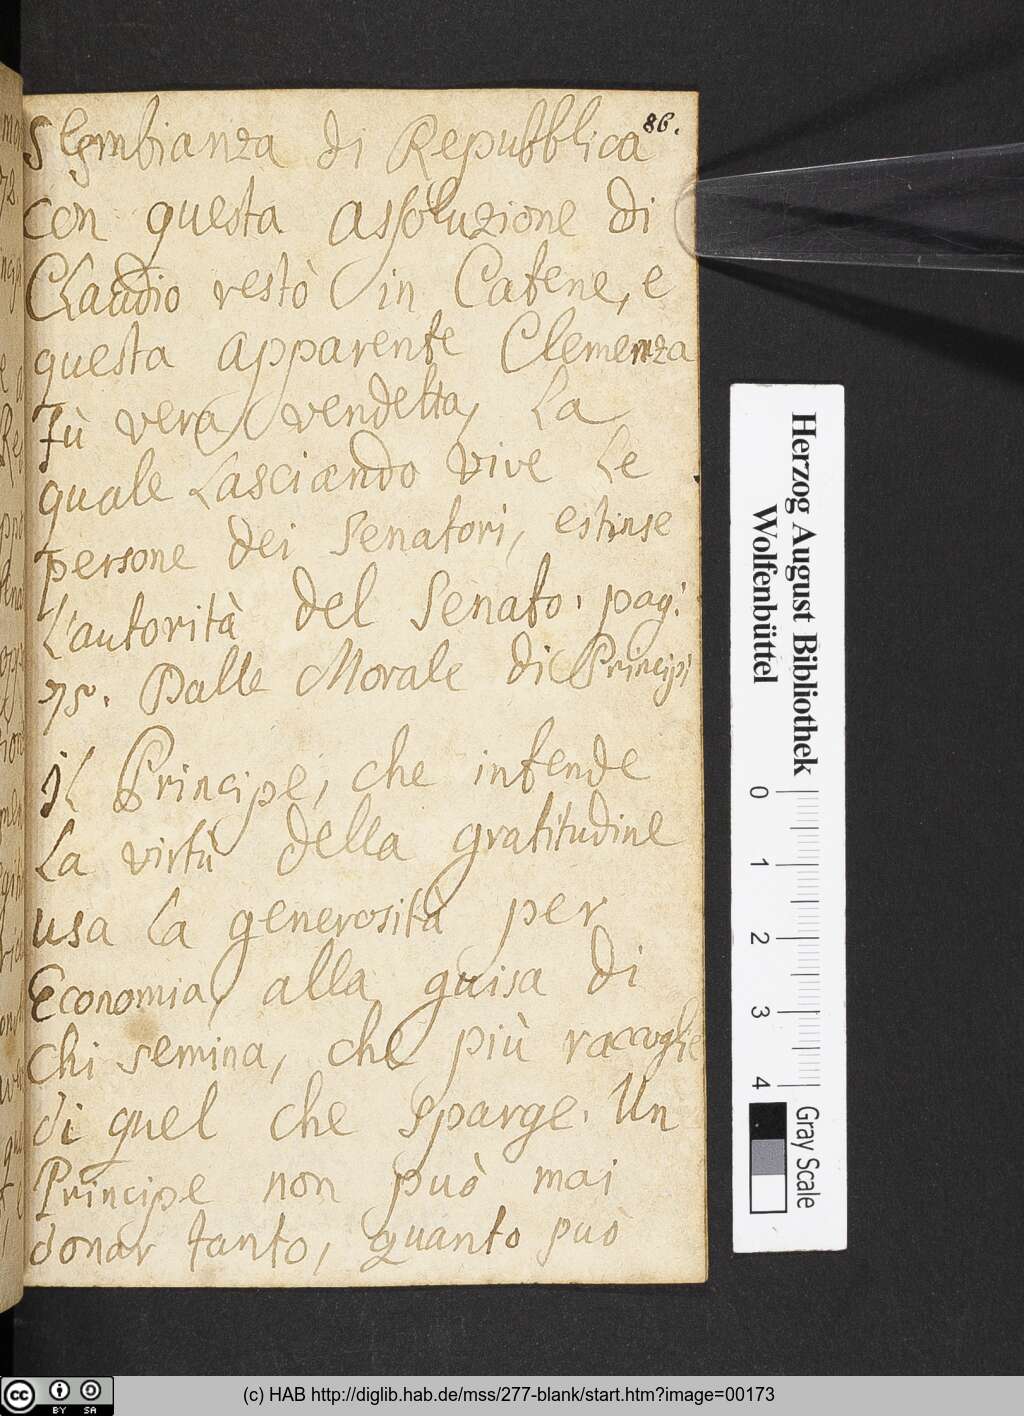 86.
Sembianza di Repubblica
con questa assoluzione di
Claudio restò in Catene, e
questa apparente Clemenza
Fù vera vendetta, La
quale Lasciando vive Le
persone dei Senatori, estinse
L'autorità del Senato. pag:
75. Dalle Morale di Principi
iL Principe, che intende
La virtù della gratitudine
usa La generosità per
Economia, alla guisa di
Chi semina, che più raccoglie
di quel che sparge. Un
Principe non può mai
donar tanto, quanto può
Herzog August Bibliothek
Wolfenbüttel
0 1 2 3 4
Gray Scale
cc BY SA
(c) HAB http://diglib.hab.de/mss/277-blank/start.htm?image=00173